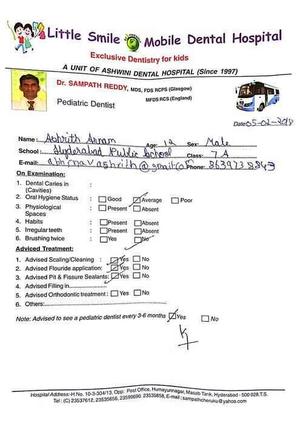 Little Smile Mobile Dental Hospital
Exclusive Dentistry for kids
A UNIT OF ASHWINI DENTAL HOSPITAL (Since 1997)
Dr. SAMPATH REDDY, MDS, FDS RCPS (Glasgow)
MFDS RCS (England)
Pediatric Dentist
Date: 05-02-2018
Name: Ashrith Age: 12 Sex: Male
School: Hyderabad Public School Class: 7A
E-mail: Phone:
On Examination:
1. Dental Caries in :
(Cavities)
2. Oral Hygiene Status : Good Average Poor
3. Physiological : Present Absent
Spaces
4. Habits : Present Absent
5. Irregular teeth : Present Absent
6. Brushing twice : Yes No
Advised Treatment:
1. Advised Scaling/Cleaning : Yes No
2. Advised Flouride application: Yes No
3. Advised Pit & Fissure Sealants: Yes No
4. Advised Filling in
5. Advised Orthodontic treatment : Yes No
6. Others:
Note: Advised to see a pediatric dentist every 3-6 months Yes No
Hospital Address: H.No. 10-3-304/13, Opp: Post Office, Humayunnagar, Masab Tank, Hyderabad - 500 028 T.S.
Tel : (C) 23537612, 23535656, 23559690, 23535858, E-mail : sampathcheruku@yahoo.com